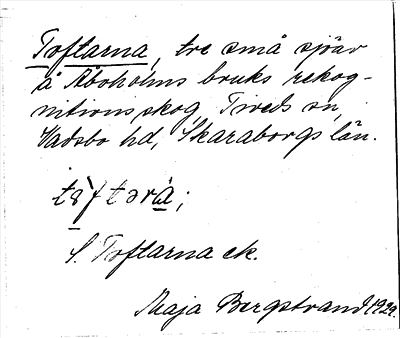 Toftarna, tre små sjöar
å Åboholms bruks rekog-
nitionsskog, Tiveds sn,
Vadsbo hd, Skaraborgs län.
S. Toftarna ek.
Maja Bergstrand 1929.